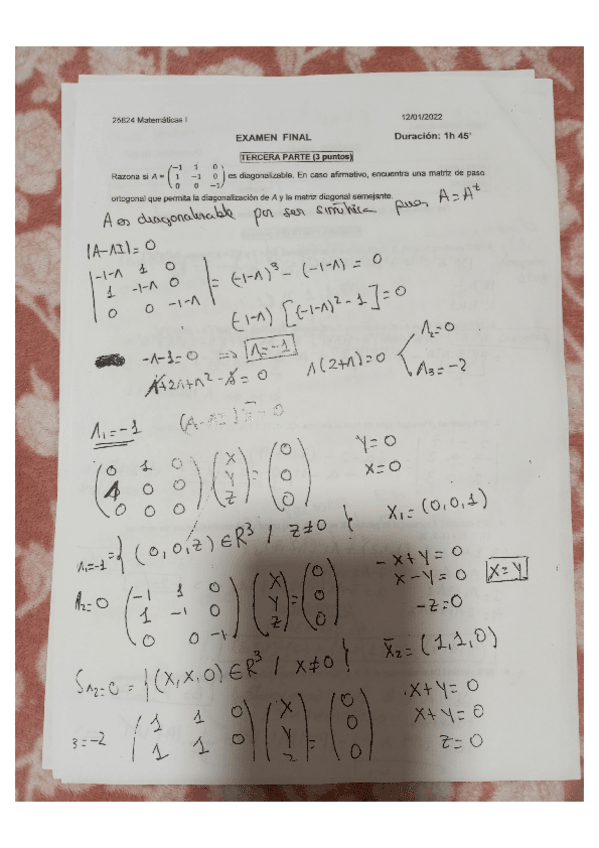 25824 Matemáticas I
12/01/2022
EXAMEN FINAL
Duración: 1h 45'
TERCERA PARTE (3 puntos)
Razona si A = (-1 1 0
1 -1 0
0 0 -1) es diagonalizable. En caso afirmativo, encuentra una matriz de paso
ortogonal que permita la diagonalización de A y la matriz diagonal semejante.
A es diagonalizable por ser simétrica pues A = A^t
|A-λI| = 0
|-1-λ 1 0
1 -1-λ 0
0 0 -1-λ| = (-1-λ)³ - (-1-λ) = 0
(-1-λ) [(-1-λ)² - 1] = 0
-λ-1=0 ⇒ λ=-1
1+2λ+λ²-1=0
λ(2+λ)=0
λ₂=0
λ₃=-2
λ₁=-1
(A-λI) x̄ = 0
(0 1 0
1 0 0
0 0 0) (X
Y
Z) = (0
0
0)
Y=0
X=0
λ₁=-1 = { (0,0,z) ∈ R³ / z≠0 }
X₁ = (0,0,1)
λ₂=0 (-1 1 0
1 -1 0
0 0 -1) (X
Y
Z) = (0
0
0)
-X+Y=0
X-Y=0
X=Y
-Z=0
Sλ₂=0 = { (X,X,0) ∈ R³ / X≠0 }
X̄₂ = (1,1,0)
3=-2 (1 1 0
1 1 0 (X
Y = (0
0
0)
X+Y=0
X+Y=0
Z=0